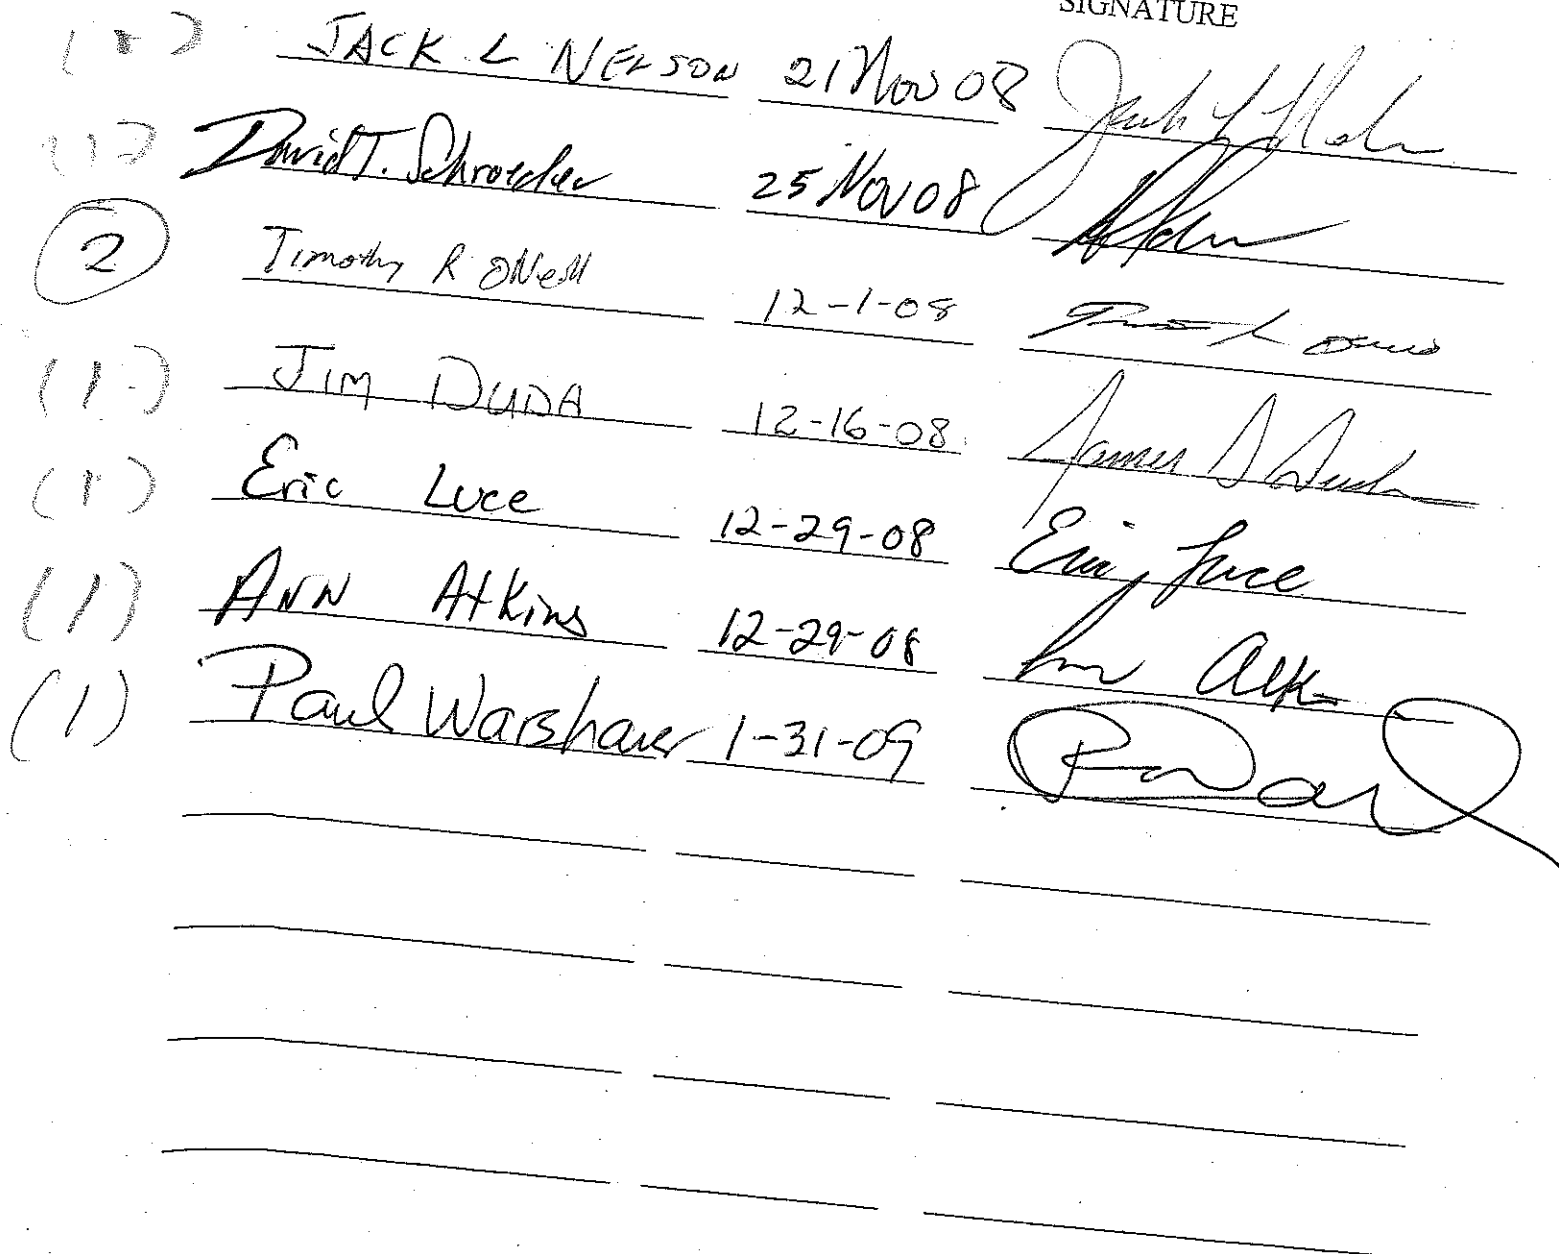 SIGNATURE
JACK L NELSON 21 Nov 08
(1) David T. Schroeder 25 NOV 08
2 Timothy R ONeill 12-1-08
(1) JIM DUDA 12-16-08 James D Duda
(1) Eric Luce 12-29-08 Eric Luce
(1) ANN Atkins 12-29-08 Ann Atk
(1) Paul Warshauer 1-31-09